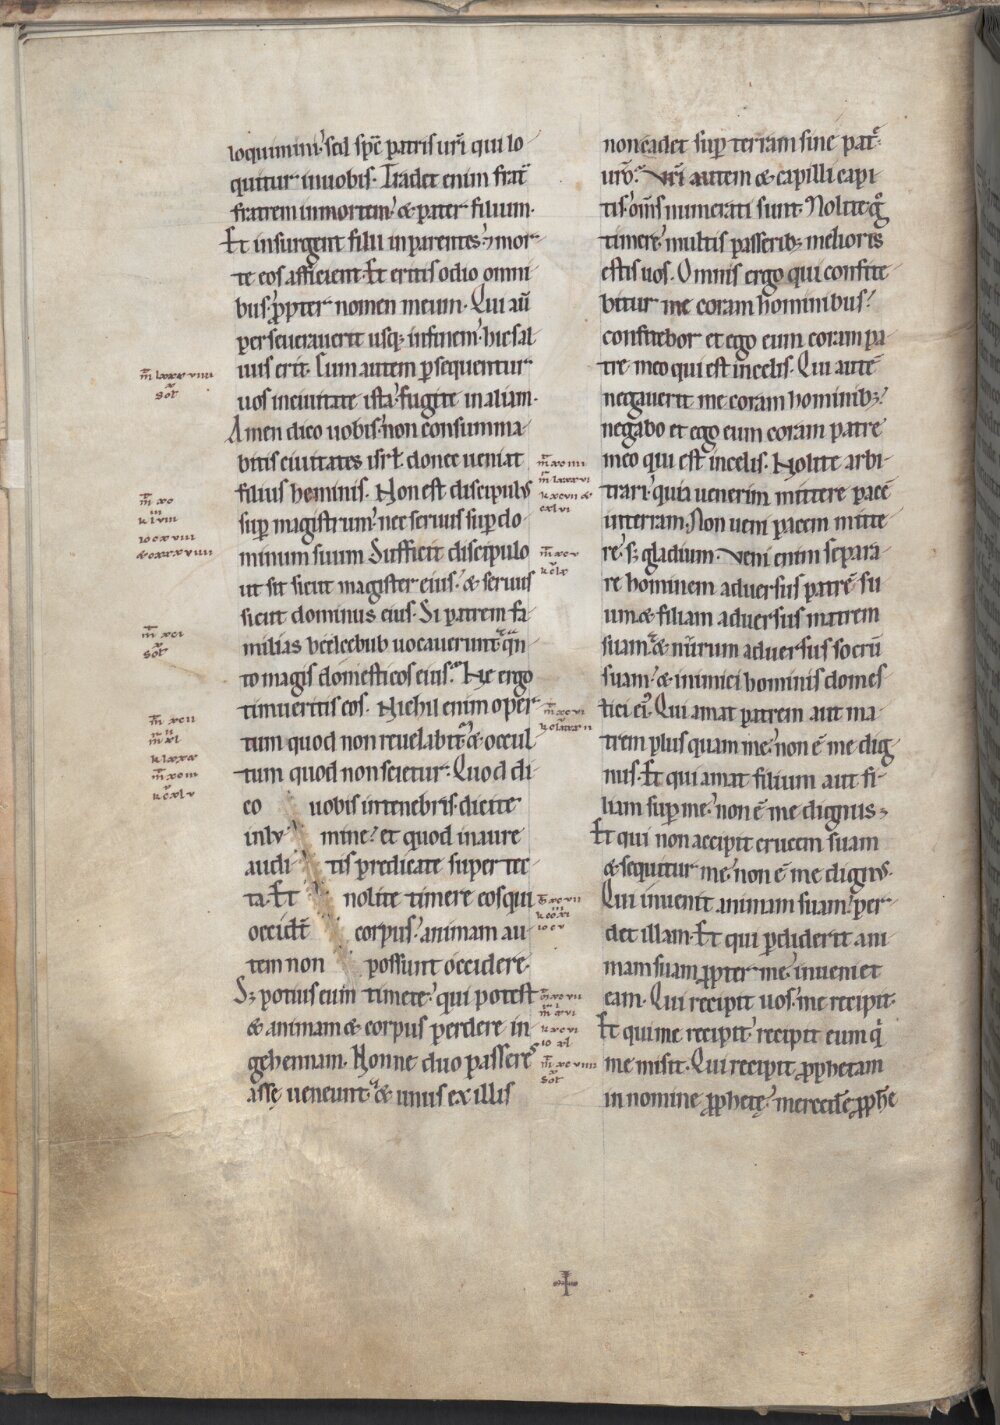 loquimini sed spc̄ patris urī qui lo
quitur inuobis. Tradet enim frat̄
fratrem inmortem & pater filium.
Et insurgent filii inparentes ⁊ mor
te eos afficient. Et eritis odio omni
bus propter nomen meum. Qui aū
perseuerauerit usq; infinem hic sal
uus erit. Cum autem psequentur
uos inciuitate ista fugite in aliam.
Amen dico uobis non consumma
bitis ciuitates isrł donec ueniat
filius hominis. Non est discipulus
sup magistrum nec seruus sup do
minum suum Sufficit discipulo
ut sit sicut magister eius & seruus
sicut dominus eius. Si patrem fa
milias beelcebub uocauerunt qn
to magis domesticos eius. Ne ergo
timueritis eos. Nichil enim oper
tum quod non reuelabit & occul
tum quod non scietur. Quod di
co uobis intenebris dicite
inlu mine et quod inaure
audi tis predicate super tec
ta. Et nolite timere eos qui
occidt̄ corpus animam au
tem non possunt occidere.
S; potius eum timete qui potest
& animam & corpus perdere in
gehennam. Nonne duo passeres
assę ueneunt & unus ex illis
non cadet sup terram sine pat
urō. Vrī autem & capilli capi
tis oms numerati sunt. Nolite g̊
timere multis passerib; meliores
estis uos. Omnis ergo qui confite
bitur me coram hominibus
confitebor et ego eum coram pa
tre meo qui est incelis. Qui autē
negauerit me coram hominib;
negabo et ego eum coram patre
meo qui est incelis. Nolite arbi
trari quia uenerim mittere pacē
interram. Non ueni pacem mitte
re s; gladium. Veni enim separa
re hominem aduersus patrē su
um & filiam aduersus matrem
suam & nurum aduersus socrū
suam & inimici hominis domes
tici ei'. Qui amat patrem aut ma
trem plus quam me non ē me dig
nus. Et qui amat filium aut fi
liam sup me non ē me dignus
Et qui non accipit crucem suam
& sequitur me non ē me dignus.
Qui inuenit animam suam per
det illam. Et qui pdiderit ani
mam suam ppter me inueniet
eam. Qui recipit uos me recipit.
Et qui me recipit recipit eum q
me misit. Qui recipit pphetam
in nomine pphetę mercedē pphē